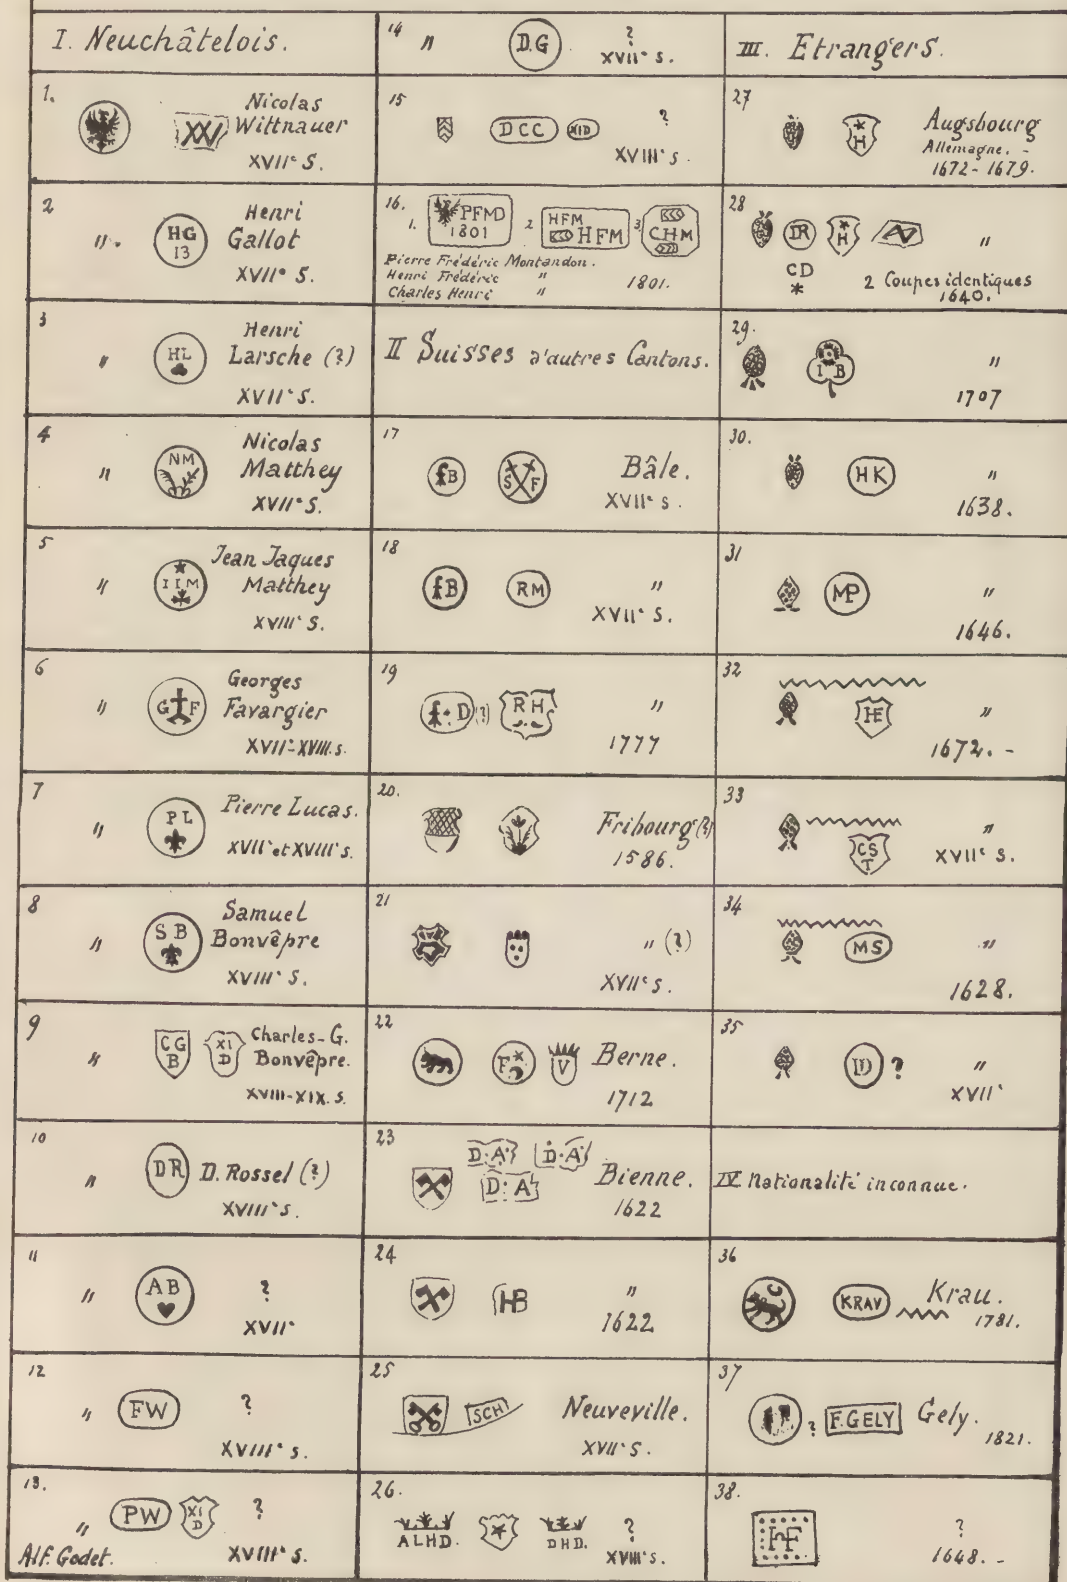 I. Neuchâtelois.
1.
XW
Nicolas
Wittnauer
XVIIe S.
2
".
HG
13
Henri
Gallot
XVIIe S.
3
"
HL
Henri
Larsche (?)
XVIIe S.
4
"
NM
Nicolas
Matthey
XVIIe S.
5
"
I I M
Jean Jaques
Matthey
XVIIIe S.
6
"
G F
Georges
Favargier
XVIIe-XVIII. s.
7
"
PL
Pierre Lucas.
XVIIe et XVIIIe s.
8
"
S B
Samuel
Bonvêpre
XVIIIe S.
9
"
CG
B
XI
D
Charles-G.
Bonvêpre.
XVIII-XIX. S.
10
"
DR
D. Rossel (?)
XVIIIe S.
11
"
AB
?
XVIIe
12
"
FW
?
XVIIIe s.
13.
"
PW
XI
D
?
Alf. Godet.
XVIIIe s.
14
"
D.G
?
XVIIe s.
15
DCC
XID
?
XVIIIe s.
16.
1.
PFMD
1801
2
HFM
HFM
3.
CHM
Pierre Frédéric Montandon.
Henri Frédéric "
Charles Henri "
1801.
II Suisses d'autres Cantons.
17
B
S F
Bâle.
XVIIe s.
18
B
RM
"
XVIIe S.
19
D (?)
RH
"
1777
20.
Fribourg (?)
1586.
21
" (?)
XVIIe s.
22
F
V
Berne.
1712
23
D:A
D.A
D:A
Bienne.
1622
24
HB
"
1622
25
SCH
Neuveville.
XVIIe S.
26.
ALHD.
DHD.
?
XVIIIe s.
III. Etrangers.
27
H
Augsbourg
Allemagne. -
1672-1679.
28
DR
H
"
CD
*
2 Coupes identiques
1640.
29.
I B
"
1707
30.
HK
"
1638.
31
MP
"
1646.
32
HE
"
1672. -
33
CS
T
"
XVIIe s.
34
MS
"
1628.
35
ID ?
"
XVIIe
IV Nationalité inconnue.
36
C
KRAV
Krau.
1781.
37
?
F. GELY
Gely.
1821.
38.
HF
?
1648. -